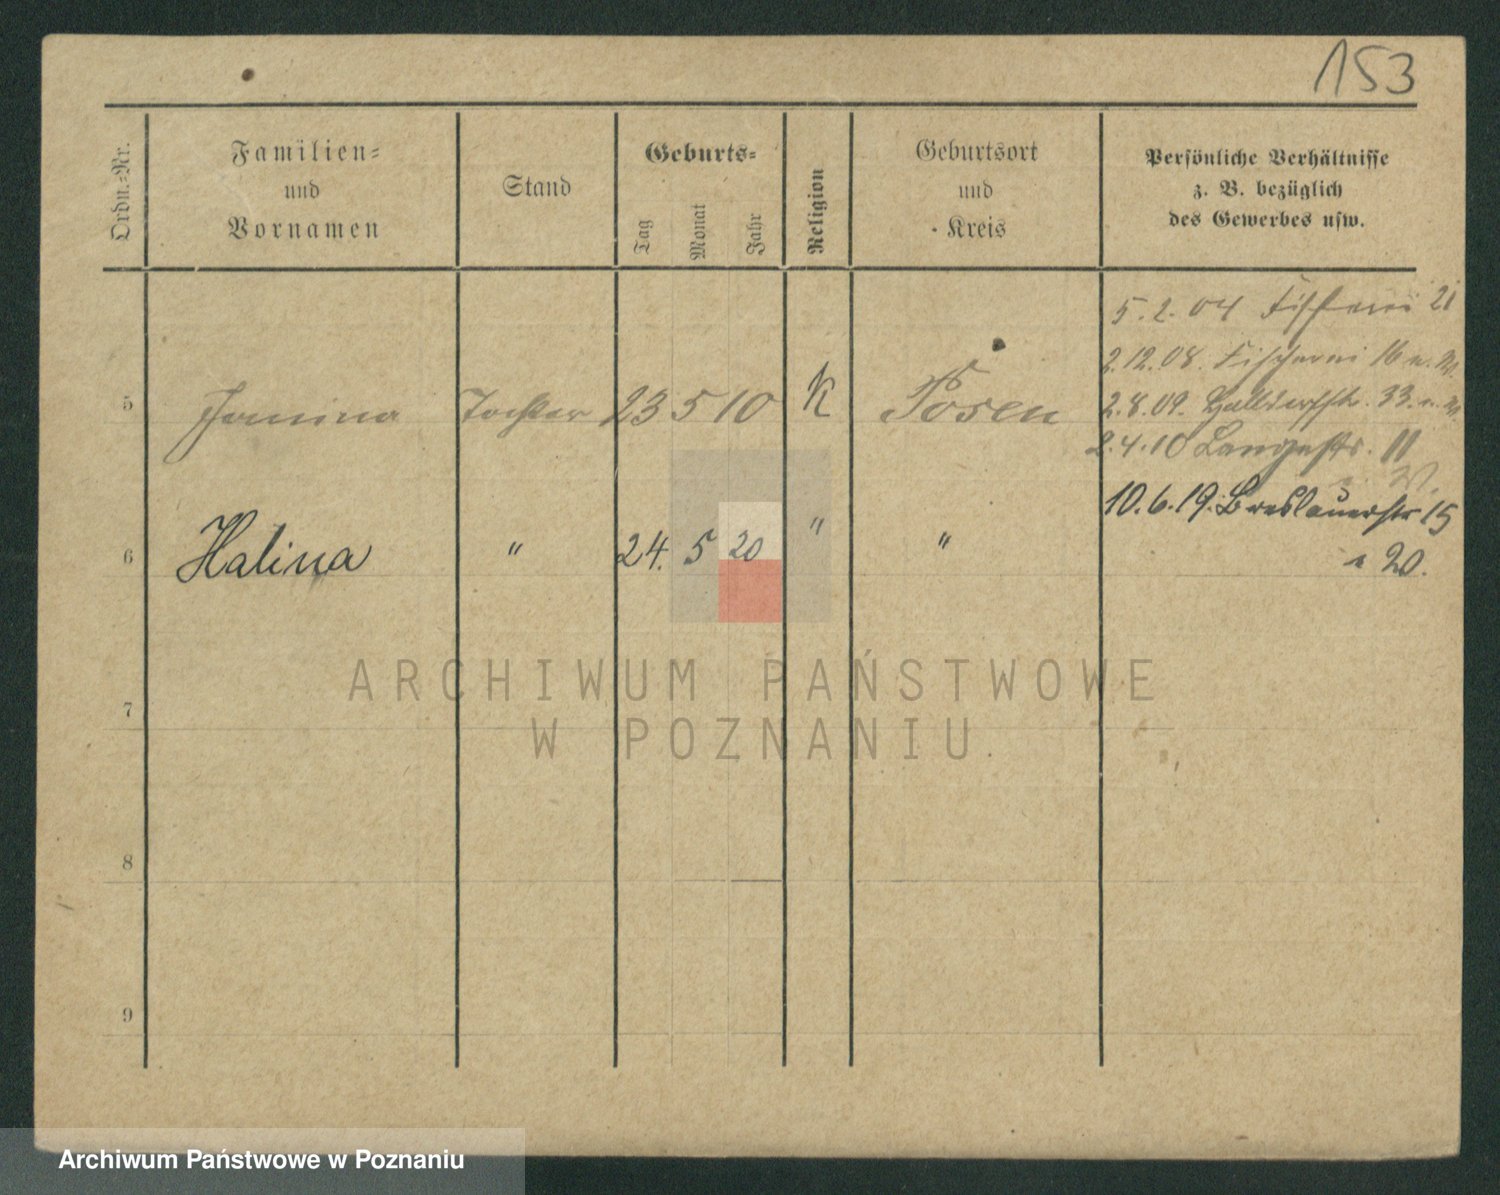 153
Ordn.-Nr.
Familien-
und
Vornamen
Stand
Geburts-
Tag
Monat
Jahr
Religion
Geburtsort
und
Kreis
Persönliche Verhältnisse
z. B. bezüglich
des Gewerbes usw.
5.2.04 Fischerei 21
2.12.08. Fischerei 16
5 Janina Tochter 23 5 10 K Posen
2.8.09. 33.
2.4.10 Langestr. 11
W.
10.6.19. Breslauerstr 15
6 Halina " 24. 5 20 " "
20.
7
8
9
ARCHIWUM PAŃSTWOWE
W POZNANIU
Archiwum Państwowe w Poznaniu